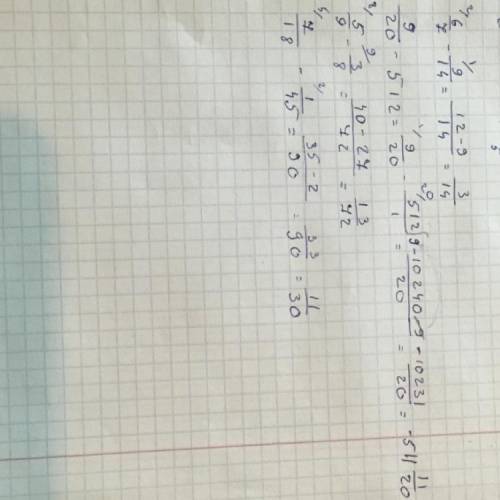 2/ 6/7 - 1/ 9/14 = 12-9/14 = 3/14
9/20 - 512 = 1/ 9/20 - 20/ 512/1 = 9-10240-9/20 = -10231/20 = -511 11/20
5/9 - 9/ 3/8 = 40-27/72 = 13/72
5/ 7/18 - 2/ 1/45 = 35-2/90 = 33/90 = 11/30